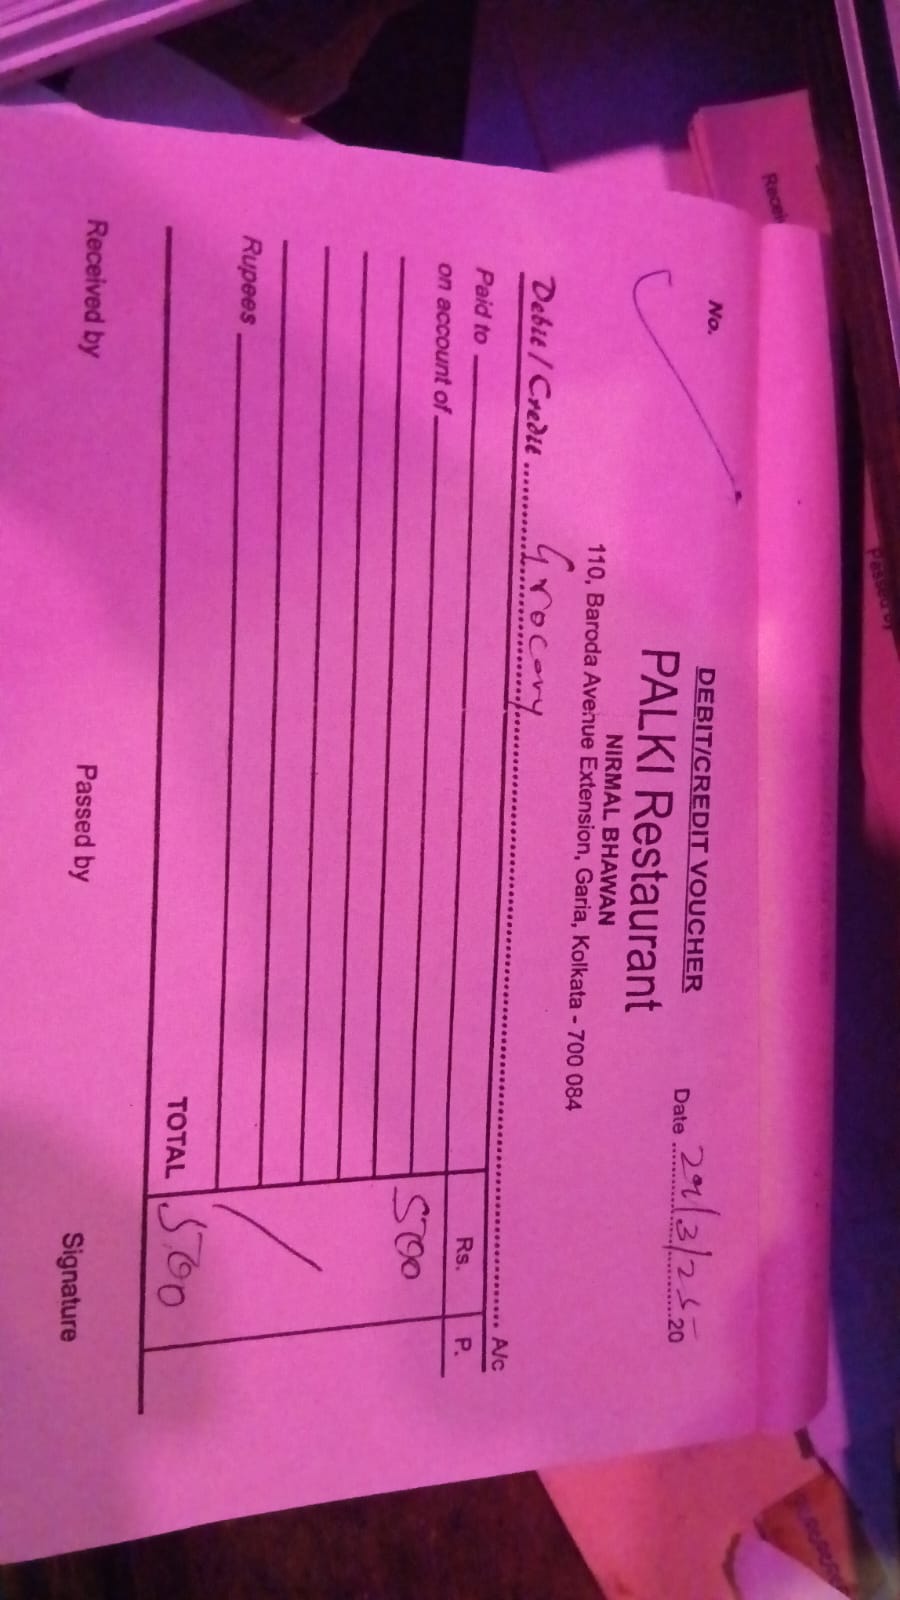 DEBIT/CREDIT VOUCHER
PALKI Restaurant
NIRMAL BHAWAN
110, Baroda Avenue Extension, Garia, Kolkata - 700 084
No.
Date 29/3/25 20
Debit / Credit Grocery A/c
Paid to Rs. P.
on account of
5700
Rupees
TOTAL 5700
Received by Passed by Signature
Passed by